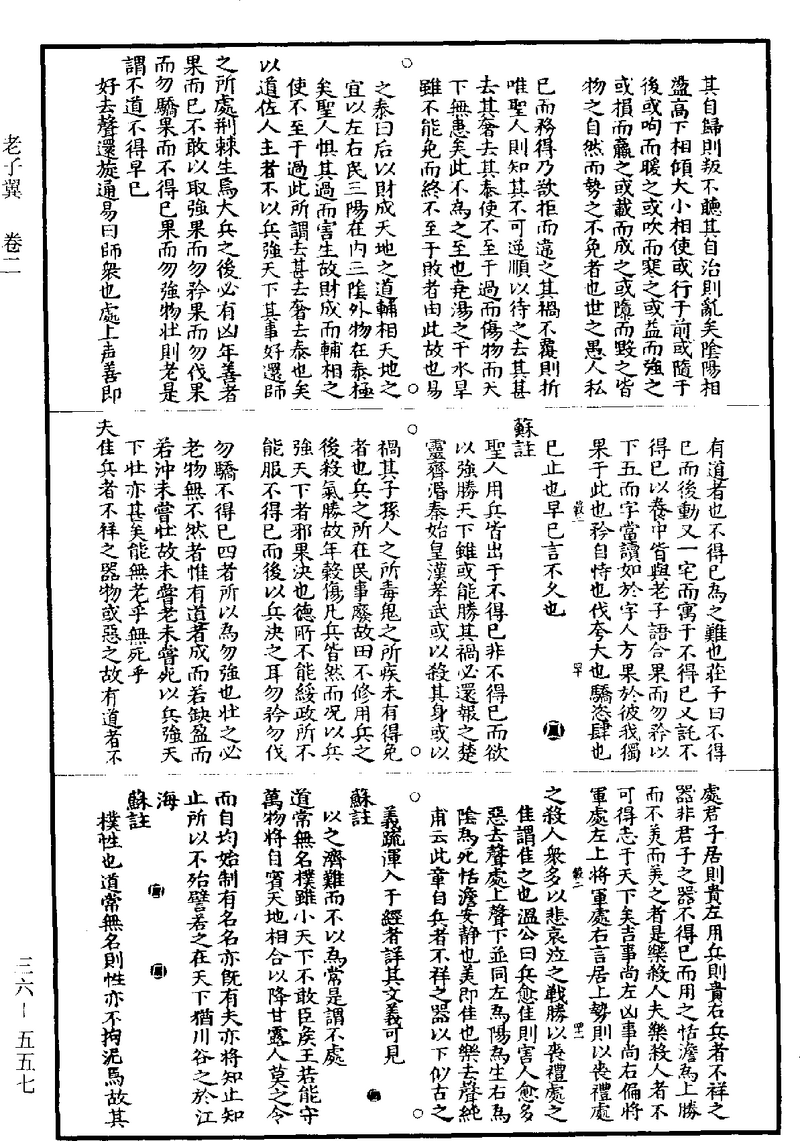 其自歸則叛不聽其自治則亂矣陰陽相
盪高下相傾大小相使或行于前或隨于
後或呴而暖之或吹而寒之或益而強之
或損而羸之或載而成之或隳而毀之皆
物之自然而勢之不免者也世之愚人私
已而務得乃欲拒而違之其禍不覆則折
唯聖人則知其不可逆順以待之去其甚
去其奢去其泰使不至于過而傷物而天
下無患矣此不為之至也堯湯之于水旱
雖不能免而終不至于敗者由此故也易
之泰曰后以財成天地之道輔相天地之
宜以左右民三陽在內三陰外物在泰極
矣聖人懼其過而害生故財成而輔相之
使不至于過此所謂去甚去奢去泰也矣
以道佐人主者不以兵強天下其事好還師
之所處荊棘生焉大兵之後必有凶年善者
果而已不敢以取強果而勿矜果而勿伐果
而勿驕果而不得已果而勿強物壯則老是
謂不道不得早已
好去聲還旋通易曰師衆也處上声善即
有道者也不得已為之難也莊子曰不得
已而後動又一宅而寓于不得已又託不
得已以養中皆與老子語合果而勿矜以
下五而字當讀如於字人方果於彼我獨
果于此也矜自恃也伐夸大也驕恣肆也
已止也早已言不久也
蘇註
聖人用兵皆出于不得已非不得已而欲
以強勝天下雖或能勝其禍必還報之楚
靈齊湣秦始皇漢孝武或以殺其身或以
禍其子孫人之所毒鬼之所疾未有得免
者也兵之所在民事廢故田不修用兵之
後殺氣勝故年穀傷凡兵皆然而況以兵
強天下者邪果決也德所不能綏政所不
能服不得已而後以兵決之耳勿矜勿伐
勿驕不得已四者所以為勿強也壯之必
老物無不然者惟有道者成而若缺盈而
若沖未嘗壯故未嘗老未嘗死以兵強天
下壯亦甚矣能無老乎無死乎
夫佳兵者不祥之器物或惡之故有道者不
處君子居則貴左用兵則貴右兵者不祥之
器非君子之器不得已而用之恬澹為上勝
而不美而美之者是樂殺人夫樂殺人者不
可得志于天下矣吉事尚左凶事尚右偏將
軍處左上將軍處右言居上勢則以喪禮處
之殺人衆多以悲哀泣之戰勝以喪禮處之
佳謂佳之也溫公曰兵愈佳則害人愈多
惡去聲處上聲下並同左為陽為生右為
陰為死恬澹安靜也美即佳也樂去聲純
甫云此章自兵者不祥之器以下似古之
義疏渾入于經者詳其文義可見
蘇註
以之濟難而不以為常是謂不處
道常無名樸雖小天下不敢臣侯王若能守
萬物將自賓天地相合以降甘露人莫之令
而自均始制有名名亦既有夫亦將知止知
止所以不殆譬若之在天下猶川谷之於江
海
蘇註
樸性也道常無名則性亦不拘泥焉故其
老子翼 卷二
三六－五五七